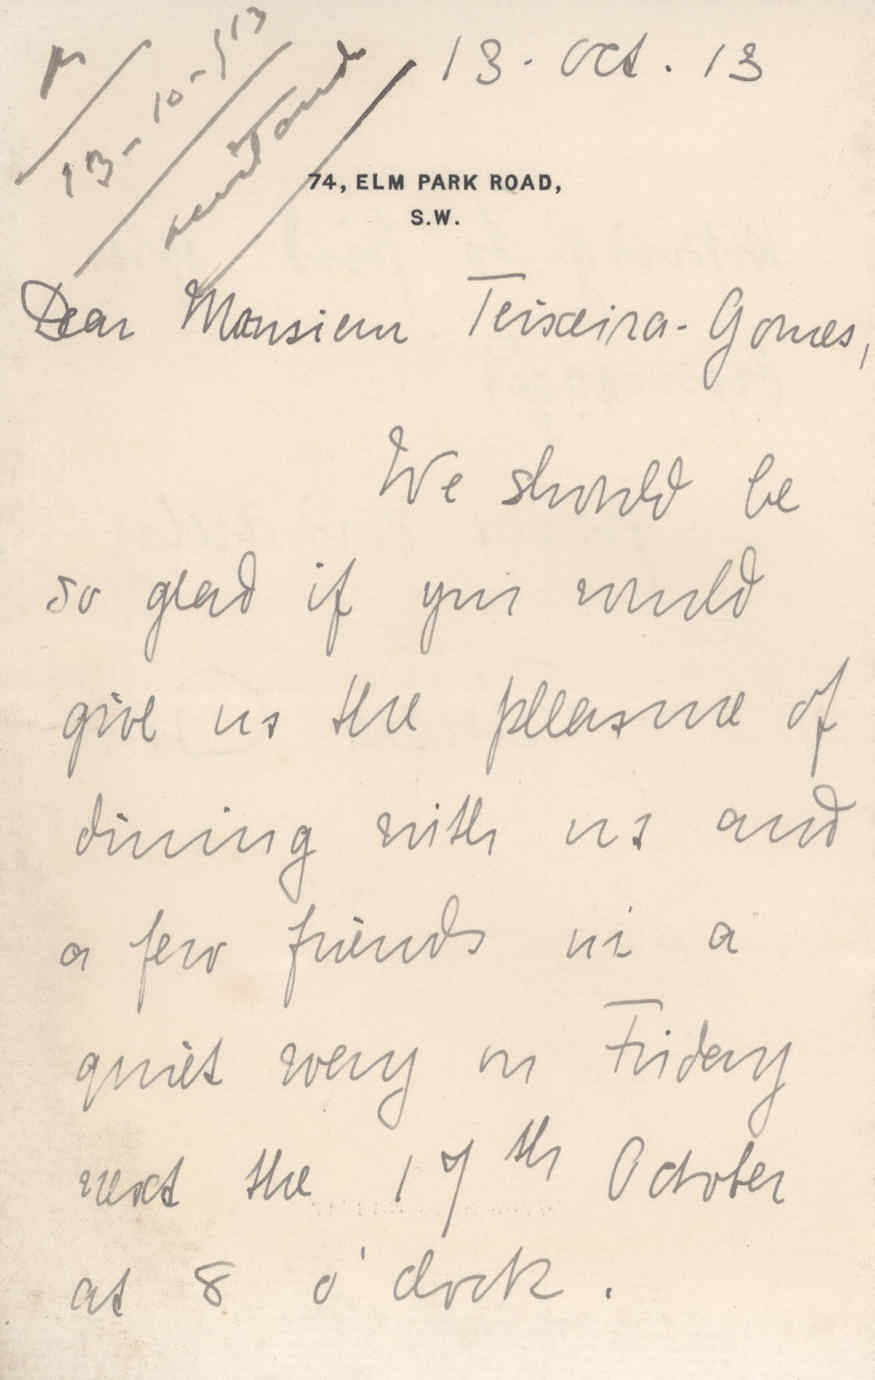 R
13-10-913
13. Oct. 13
74, ELM PARK ROAD,
S.W.
Dear Monsieur Teixeira-Gomes,
We should be
so glad if you would
give us the pleasure of
dining with us and
a few friends in a
quiet way on Friday
next the 17th October
at 8 o'clock.